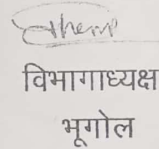 विभागाध्यक्ष
भूगोल